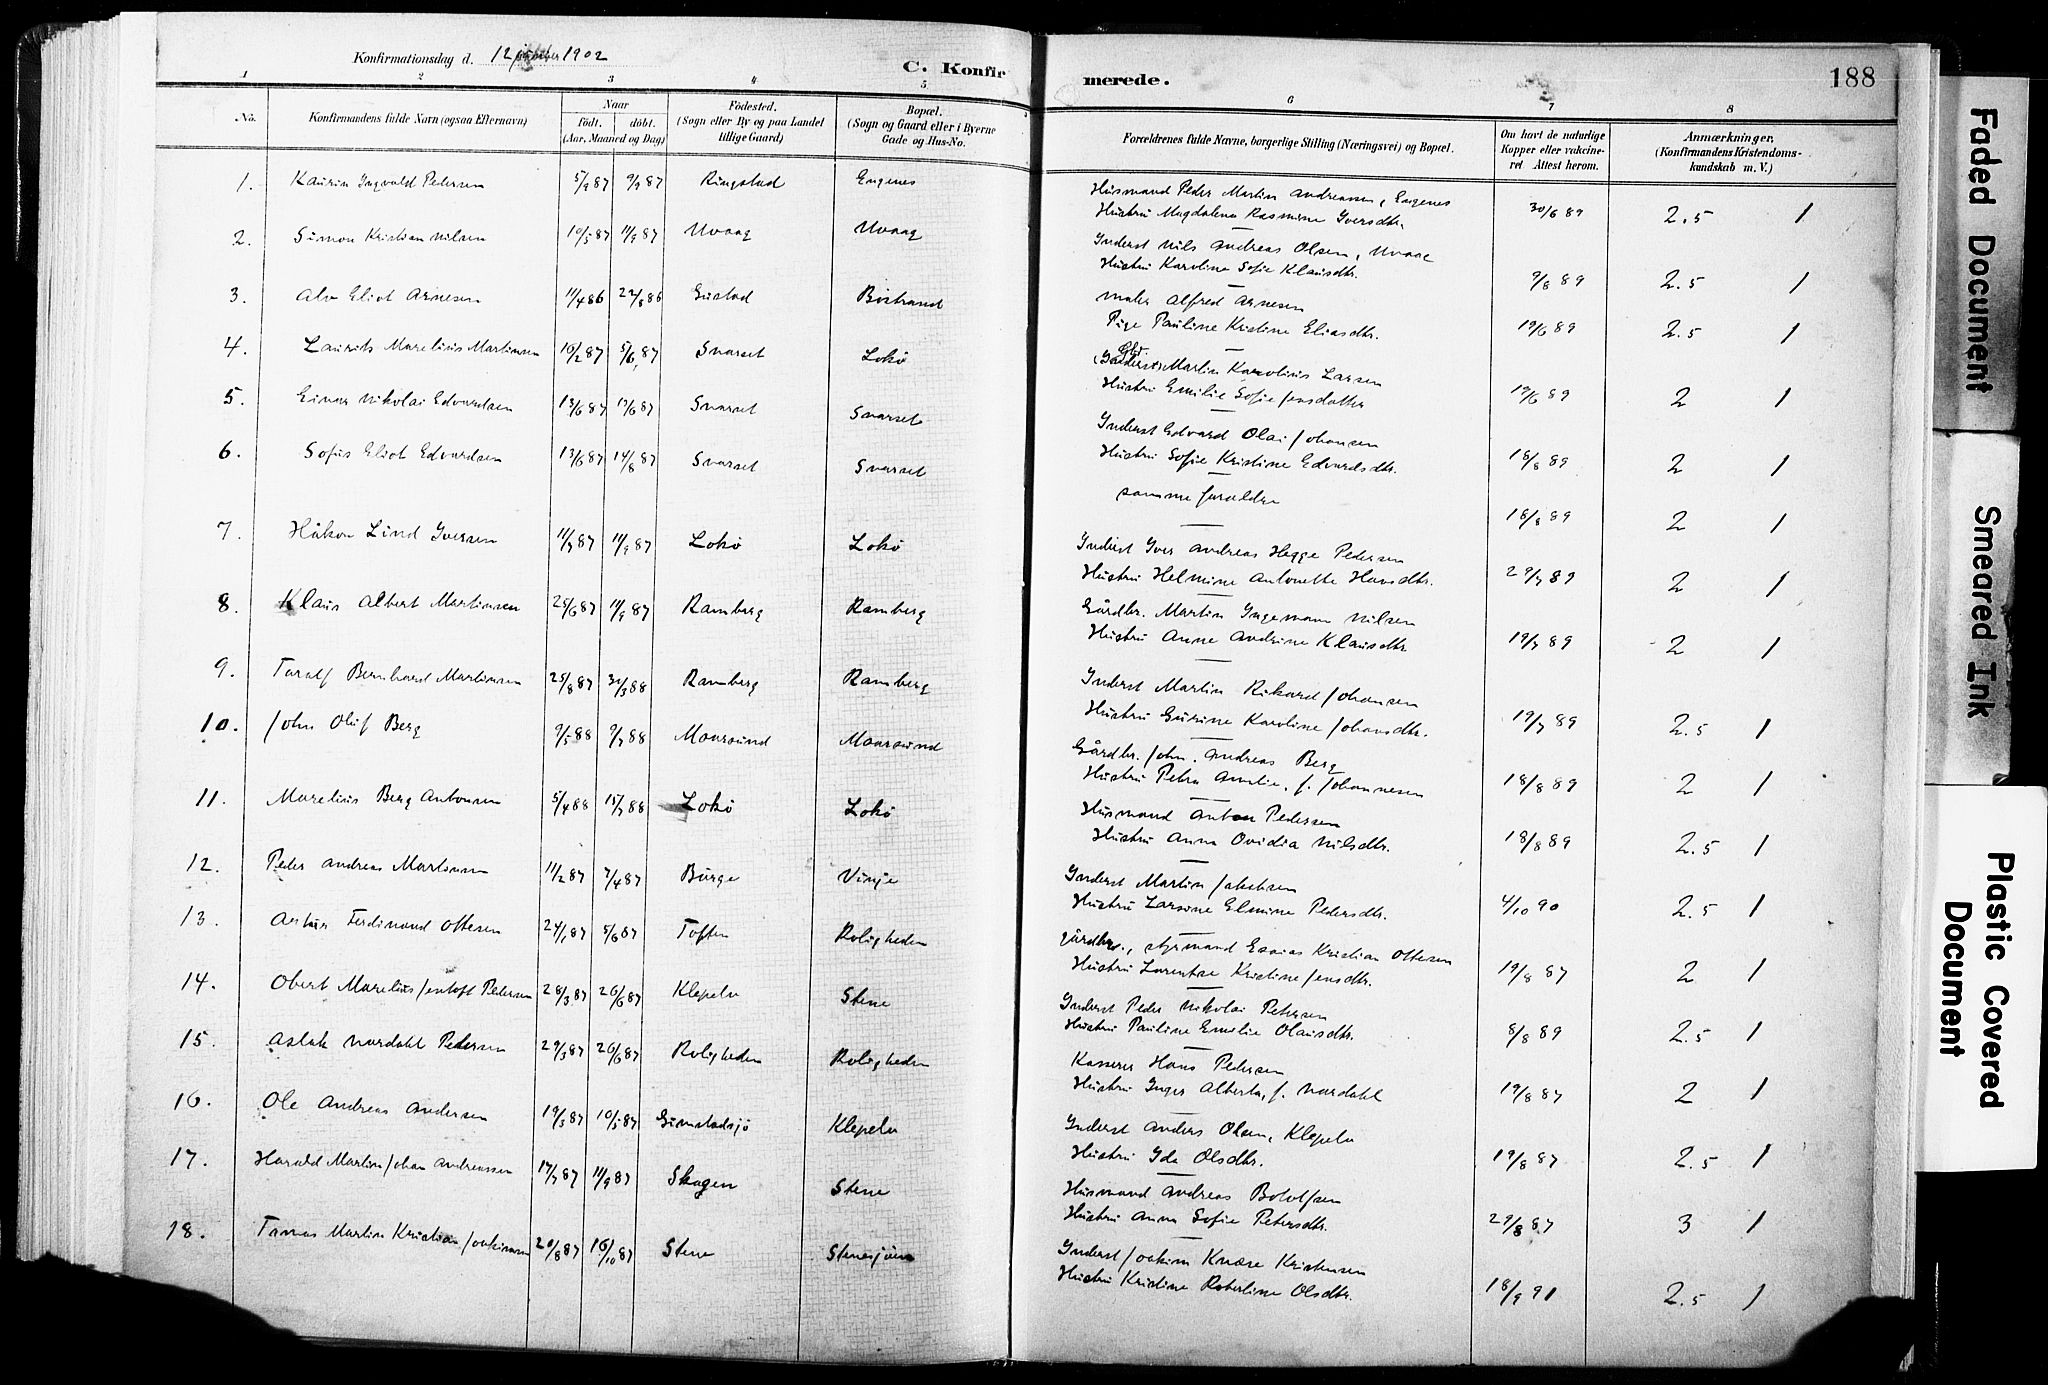 Konfirmationsdag d. 12 oktober 1902
C. Konfirmerede.
188
1 2 3 4 5 6 7 8
No.
Konfirmandens fulde Navn (ogsaa Efternavn)
Naar
født. døbt.
(Aar, Maaned og Dag)
Fødested.
(Sogn eller By og paa Landet
tillige Gaard)
Bopæl.
(Sogn og Gaard eller i Byerne
Gade og Hus-No.
Forældrenes fulde Navne, borgerlige Stilling (Næringsvei) og Bopæl.
Om havt de naturlige
Kopper eller vakcine-
ret Attest herom.
Anmærkninger,
(Konfirmandens Kristendoms-
kundskab m. V.)
1. Kaurin Ingvald Pedersen 5/9 87 9/9 87 Ringstad Engenes
Husmand Peder Martin Andreassen, Engenes
Hustru Magdalena Rasmine Iversdtr. 30/6 89 2.5 1
2. Simon Kristian Nilsen 10/5 87 11/9 87 Uvaag Uvaag
Inderst Nils Andreas Olsen, Uvaag
Hustru Karoline Sofie Klausdtr. 9/8 89 2.5 1
3. Alv Eliot Arnesen 11/4 86 22/8 86 Gustad Böstrand
maler Alfred Arnesen
Pige Pauline Kristine Eliasdtr. 19/6 89 2.5 1
4. Laurits Marelius Martinsen 16/2 87 5/6 87 Svarset Lokö
Martin Karolius Larsen
Hustru Emilie Sofie Jensdatter 19/6 89 2 1
5. Einar Nikolai Edvardsen 13/6 87 13/6 87 Svarset Svarset
Inderst Edvard Olai Johansen
Hustru Sofie Kristine Edvardsdtr. 18/8 89 2 1
6. Sofus Eliot Edvardsen 13/6 87 14/8 87 Svarset Svarset
samme forældre
18/8 89 2 1
7. Håkon Lind Iversen 11/7 87 11/9 87 Lokö Lokö
Inderst Iver Andreas Hegge Pedersen
Hustru Helmine Antonette Hansdtr. 29/7 89 2 1
8. Klaus Albert Martinsen 25/6 87 11/9 87 Ramberg Ramberg
Gårdbr. Martin Ingemann Nilsen
Hustru Anne Andrine Klausdtr. 19/7 89 2 1
9. Toralf Bernhard Martinsen 25/8 87 30/3 88 Ramberg Ramberg
Inderst Martin Rikard Johansen
Hustru Gurine Karoline Johansdtr. 19/7 89 2.5 1
10. John Oluf Berg 9/5 88 9/7 88 Maursund Maursund
Gårdbr. John Andreas Berg
Hustru Petra Amalie, f. Johannesen 18/8 89 2 1
11. Marelius Berg Antonsen 5/4 88 15/7 88 Lokö Lokö
Husmand Anton Pedersen
Hustru Anna Ovidia Nilsdtr. 18/8 89 2.5 1
12. Peder Andreas Martinsen 11/2 87 7/4 87 Burge Vinje
Inderst Martin Jakobsen
Hustru Larsine Elmine Pedersdtr. 4/10 90 2.5 1
13. Artur Ferdinand Ottesen 24/1 87 5/6 87 Toften Roligheden
gårdbr., styrmand Esaias Kristian Ottesen
Hustru Lorentze Kristine Jensdtr. 19/8 87 2 1
14. Obert Marelius Jentoft Pedersen 28/3 87 26/6 87 Klepelv Stene
Inderst Peder Nikolai Petersen
Hustru Pauline Emelie Olausdtr. 8/8 89 2.5 1
15. Aslak Nordahl Pedersen 29/3 87 26/6 87 Roligheden Roligheden
Kasserer Hans Pedersen
Hustru Inger Alberta, f. Nordahl 19/8 87 2 1
16. Ole Andreas Andersen 19/3 87 10/5 87 Gimstadsjö Klepelv
Inderst Anders Olsen, Klepelv
Hustru Ida Olsdtr. 19/8 87 2.5 1
17. Harald Martin Johan Andreassen 17/7 87 11/9 87 Skogen Stene
Husmand Andreas Bolotsen
Hustru Anna Sofie Petersdtr. 29/8 87 3 1
18. Tomas Martin Kristian Joakimsen 20/8 87 16/10 87 Stene Stenesjöen
Inderst Joakim Knöse Kristensen
Hustru Kristine Roberline Olsdtr. 18/9 91 2.5 1
Faded Document
Smeared Ink
Plastic Covered
Document